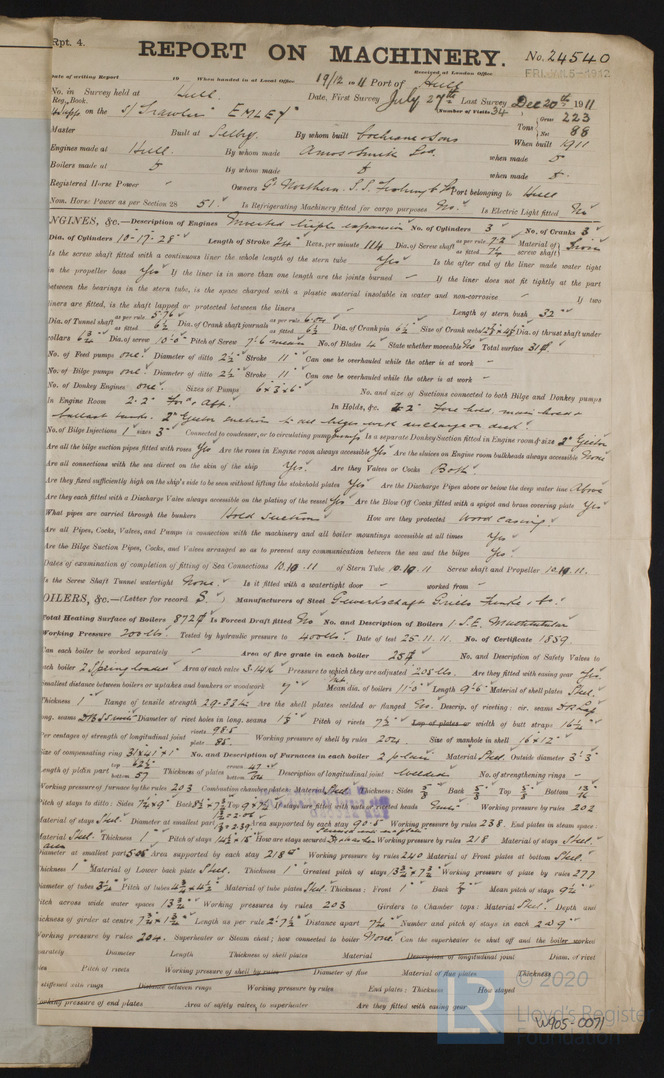 Rpt. 4.
REPORT ON MACHINERY.
No. 24540
FRI. JAN 5-1912
Date of writing Report 19 When handed in at Local Office 19/12 1911 Port of Hull
Received at London Office
No. in Survey held at Hull. Date, First Survey July 27th Last Survey Dec 20th 1911
Reg. Book. (Number of Visits 34)
on the S/ Trawler "EMLEY" Tons Gross 223 Net 88
Master Built at Selby. By whom built Cochrane & Sons When built 1911
Engines made at Hull. By whom made Amos & Smith Ltd when made
Boilers made at By whom made when made
Registered Horse Power Owners Gt Northern S.S. Fishing Co Ld Port belonging to Hull
Nom. Horse Power as per Section 28 51. Is Refrigerating Machinery fitted for cargo purposes No. Is Electric Light fitted No
ENGINES, &c.—Description of Engines Inverted triple expansion No. of Cylinders 3 No. of Cranks 3
Dia. of Cylinders 10-17-28" Length of Stroke 24" Revs. per minute 114 Dia. of Screw shaft as per rule 7.2 as fitted 7¼ Material of screw shaft Iron
Is the screw shaft fitted with a continuous liner the whole length of the stern tube Yes Is the after end of the liner made water tight
in the propeller boss Yes If the liner is in more than one length are the joints burned If the liner does not fit tightly at the part
between the bearings in the stern tube, is the space charged with a plastic material insoluble in water and non-corrosive If two
liners are fitted, is the shaft lapped or protected between the liners Length of stern bush 32"
Dia. of Tunnel shaft as per rule 5.76 as fitted 6½ Dia. of Crank shaft journals as per rule 6.04 as fitted 6½ Dia. of Crank pin 6½" Size of Crank webs Dia. of thrust shaft under
collars 6¾ Dia. of screw 10'-0" Pitch of Screw 7'-6" mean No. of Blades 4 State whether moveable No Total surface 31
No. of Feed pumps one. Diameter of ditto 2½" Stroke 11" Can one be overhauled while the other is at work
No. of Bilge pumps one. Diameter of ditto 2½" Stroke 11" Can one be overhauled while the other is at work
No. of Donkey Engines one. Sizes of Pumps 6 x 3 x 6" No. and size of Suctions connected to both Bilge and Donkey pumps
In Engine Room 2-2" For'd & Aft. In Holds, &c. 2-2" Fore hold, main hold &
ballast tank. 2" Ejector suction to all bilges with discharge on deck.
No. of Bilge Injections 1 sizes 3" Connected to condenser, or to circulating pump pumps Is a separate Donkey Suction fitted in Engine room & size 2" Ejector
Are all the bilge suction pipes fitted with roses Yes Are the roses in Engine room always accessible Yes Are the sluices on Engine room bulkheads always accessible None
Are all connections with the sea direct on the skin of the ship Yes. Are they Valves or Cocks Both
Are they fixed sufficiently high on the ship's side to be seen without lifting the stokehold plates Yes Are the Discharge Pipes above or below the deep water line Above
Are they each fitted with a Discharge Valve always accessible on the plating of the vessel Yes Are the Blow Off Cocks fitted with a spigot and brass covering plate Yes
What pipes are carried through the bunkers Hold suctions How are they protected Wood casing.
Are all Pipes, Cocks, Valves, and Pumps in connection with the machinery and all boiler mountings accessible at all times Yes
Are the Bilge Suction Pipes, Cocks, and Valves arranged so as to prevent any communication between the sea and the bilges Yes
Dates of examination of completion of fitting of Sea Connections 10.10.11. of Stern Tube 10.10.11 Screw shaft and Propeller 10.10.11.
Is the Screw Shaft Tunnel watertight None. Is it fitted with a watertight door worked from
BOILERS, &c.—(Letter for record S) Manufacturers of Steel Gewerkschaft Grillo Funke & Co.
Total Heating Surface of Boilers 872 Is Forced Draft fitted No No. and Description of Boilers 1 S.E. Multitubular
Working Pressure 200 lbs. Tested by hydraulic pressure to 400 lbs. Date of test 25.11.11. No. of Certificate 1859
Can each boiler be worked separately Area of fire grate in each boiler 25 No. and Description of Safety Valves to
each boiler 2 Spring loaded Area of each valve 3.14 Pressure to which they are adjusted 205 lbs. Are they fitted with easing gear Yes.
Smallest distance between boilers or uptakes and bunkers or woodwork 9" Mean dia. of boilers 11'-0" Length 9'-6" Material of shell plates Steel.
Thickness 1" Range of tensile strength 29-33 Are the shell plates welded or flanged Descrip. of riveting: cir. seams
long. seams Diameter of rivet holes in long. seams 1 Pitch of rivets 7½" Lap of plates or width of butt straps 16¼"
Per centages of strength of longitudinal joint rivets 98.5 plate 85. Working pressure of shell by rules 204. Size of manhole in shell 16" x 12"
Size of compensating ring No. and Description of Furnaces in each boiler 2 plain Material Steel Outside diameter 3'.3"
Length of plain part top 62½ bottom 57 Thickness of plates crown bottom Description of longitudinal joint Welded No. of strengthening rings
Working pressure of furnace by the rules 203 Combustion chamber plates: Material Steel Thickness: Sides Back Top Bottom
Pitch of stays to ditto: Sides Back Top If stays are fitted with nuts or riveted heads Working pressure by rules 202
Material of stays Steel Diameter at smallest part Area supported by each stay 90.5 Working pressure by rules 238. End plates in steam space:
Material Steel. Thickness 1" Pitch of stays How are stays secured Working pressure by rules 218 Material of stays Steel.
Diameter at smallest part 5.05 Area supported by each stay 218 Working pressure by rules 240 Material of Front plates at bottom Steel.
Thickness 1" Material of Lower back plate Steel. Thickness 1" Greatest pitch of stays Working pressure of plate by rules 277
Diameter of tubes 3¼" Pitch of tubes Material of tube plates Steel. Thickness: Front 1" Back Mean pitch of stays
Pitch across wide water spaces Working pressures by rules 203 Girders to Chamber tops: Material Steel. Depth and
thickness of girder at centre Length as per rule 2'-7½" Distance apart 7¼" Number and pitch of stays in each 2 @ 9"
Working pressure by rules 204. Superheater or Steam chest; how connected to boiler None. Can the superheater be shut off and the boiler worked
separately Diameter Length Thickness of shell plates Material Description of longitudinal joint Diam. of rivet
holes Pitch of rivets Working pressure of shell by rules Diameter of flue Material of flue plates Thickness
If stiffened with rings Distance between rings Working pressure by rules End plates: Thickness How stayed
Working pressure of end plates Area of safety valves to superheater Are they fitted with easing gear
© 2020
LR
Lloyd's Register
Foundation
W905-0071